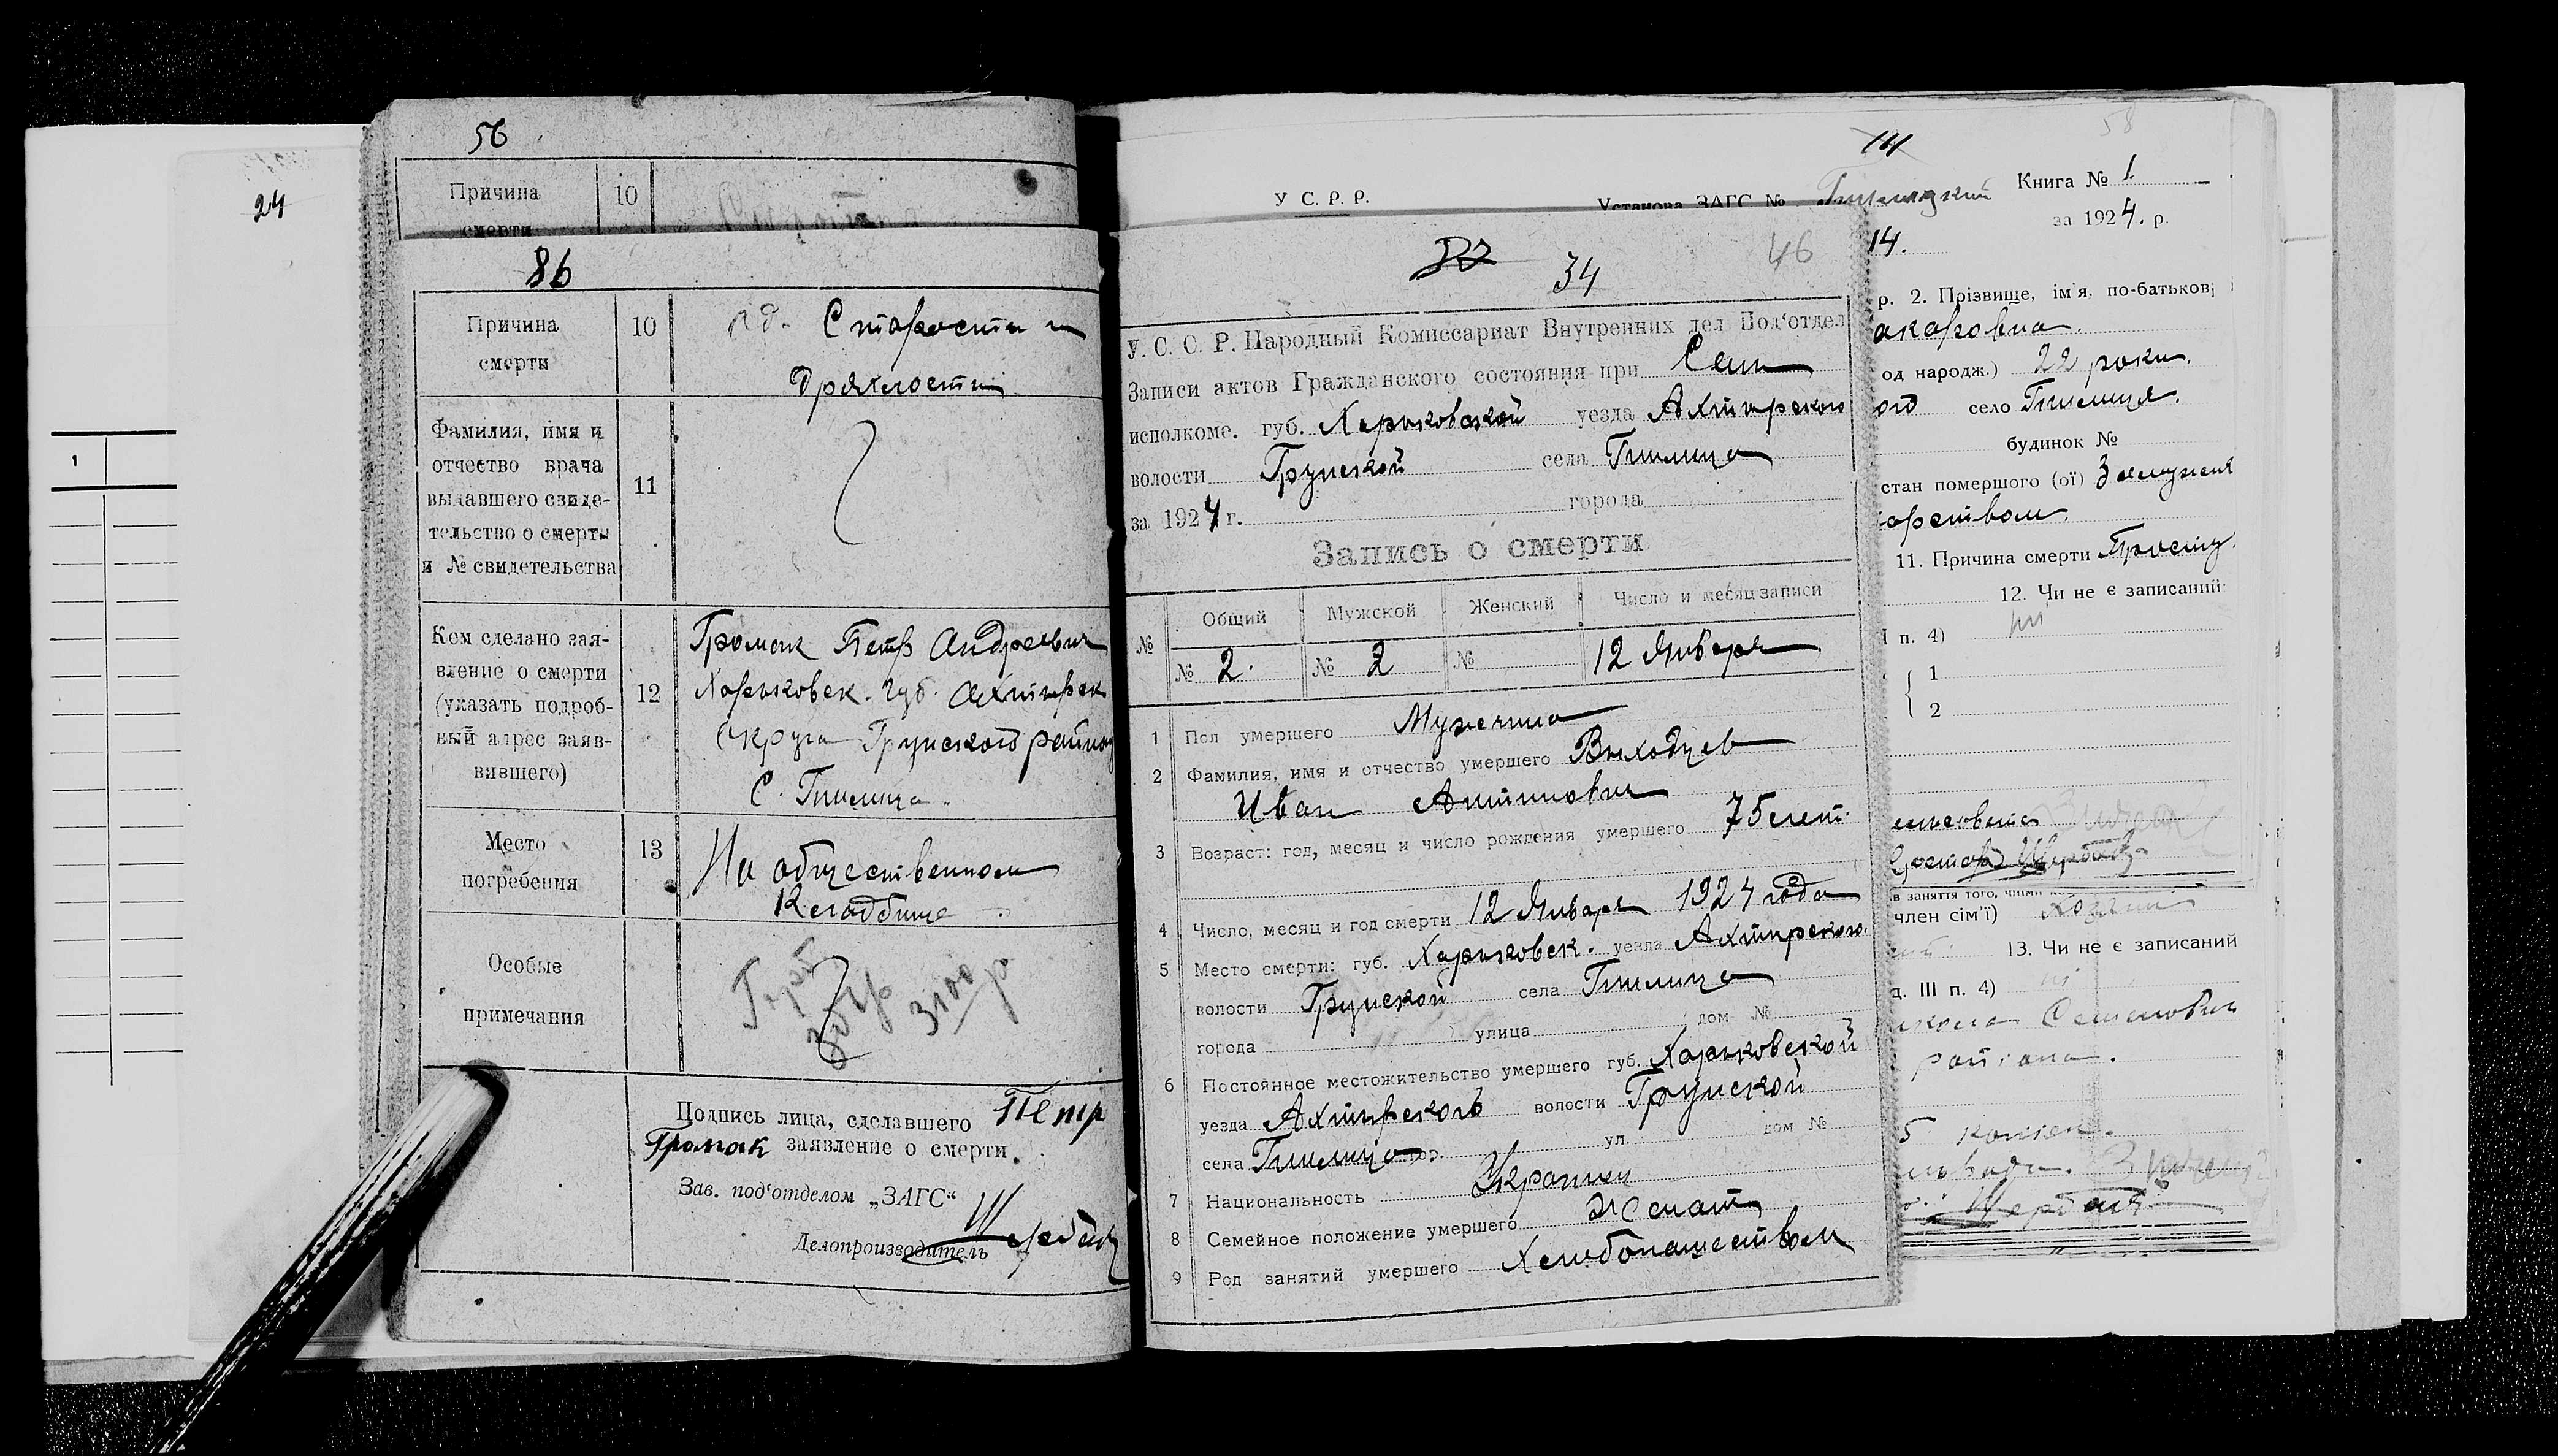 24
1
56
Причина 10
смерти
86
Причина 10 Старости и
смерти дряхлости
Фамилия, имя и
отчество врача
выдавшего свиде- 11
тельство о смерти
и № свидетельства
Кем сделано зая- Громак Петр Андреевич
вление о смерти Харьковск. губ. Ахтырск
(указать подроб- 12
ный адрес заяв- Округа Грунского района
вившего) С. Гнилица.
Место 13 На общественном
погребения Кладбище
Особые
примечания 3100 р
Подпись лица, сделавшего Петр
Громак заявление о смерти.
Зав. под'отделом „ЗАГС“
Делопроизводитель
У С. Р. Р. Установа ЗАГС № Книга № 1.
за 1924. р.
14.
34 46
У. С. С. Р. Народный Комиссариат Внутренних дел Под'отдел
Записи актов Гражданского состояния при Сель
исполкоме. губ. Харьковской уезда Ахтирского
волости Грунской села Гнилица
за 1924 г. города
Запись о смерти
№ Общий Мужской Женский Число и месяц записи
№ 2. № 2 № 12 Января
1 Пол умершего Мужчина
2 Фамилия, имя и отчество умершего Выходцев
Иван Антипович
3 Возраст: год, месяц и число рождения умершего 75 лет.
4 Число, месяц и год смерти 12 Января 1924 года
5 Место смерти: губ. Харьковск. уезда Ахтирского
волости Грунской села Гнилица
города улица дом №
6 Постоянное местожительство умершего губ. Харьковской
уезда Ахтирского волости Грунской
села Гнилица гор. ул. дом №
7 Национальность Украинец
8 Семейное положение умершего Женат
9 Род занятий умершего Хлебопашеством
р. 2. Прізвище, ім'я, по-батькові
акаровна.
од народж.) 22 роки.
ого село Гнилиця.
будинок №
стан помершого (ої) Замужня
арством.
11. Причина смерти
12. Чи не є записаний
І п. 4) ні
1
2
в заняття того, чиїм
член сім'ї)
13. Чи не є записаний
д. III п. 4) ні
икола Семенович
района.
5 копієк.